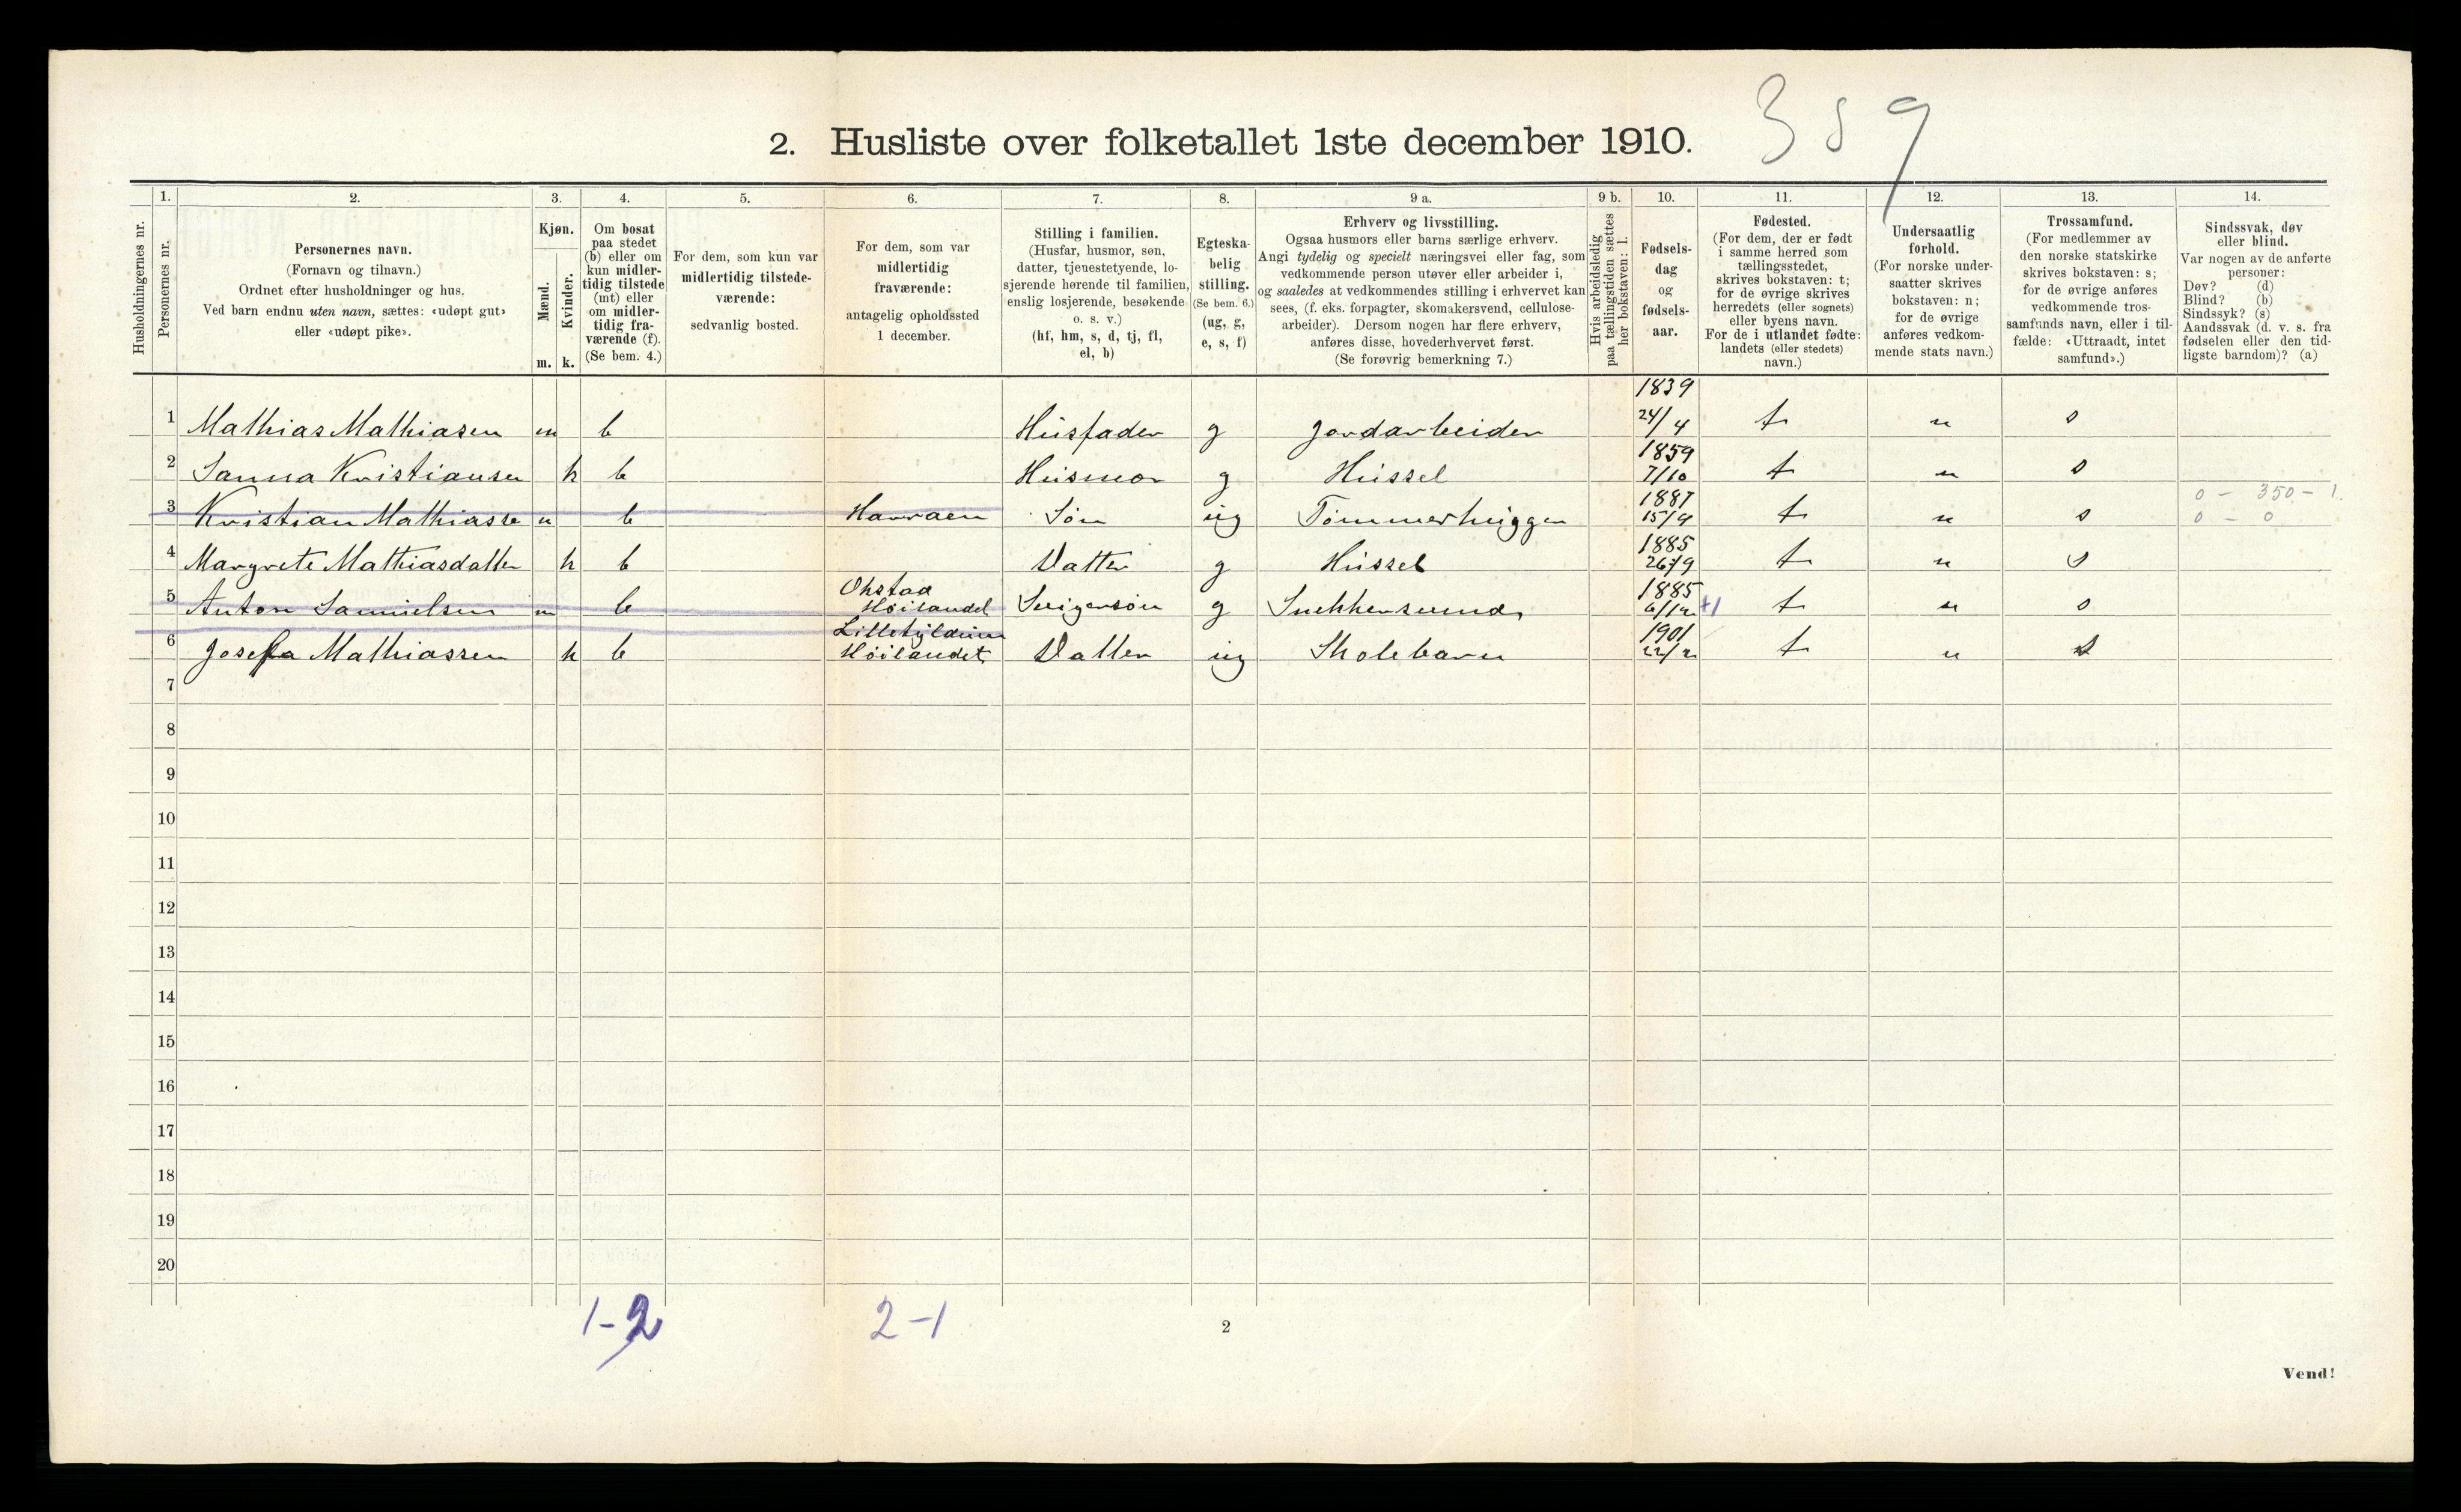 389
2. Husliste over folketallet 1ste december 1910.
Husholdningernes nr.
1.
Personernes nr.
2.
Personernes navn.
(Fornavn og tilnavn.)
Ordnet efter husholdninger og hus.
Ved barn endnu uten navn, sættes: «udøpt gut»
eller «udøpt pike».
3.
Kjøn.
Mænd.
Kvinder.
m. k.
4.
Om bosat
paa stedet
(b) eller om
kun midler-
tidig tilstede
(mt) eller
om midler-
tidig fra-
værende (f).
(Se bem. 4.)
5.
For dem, som kun var
midlertidig tilstede-
værende:
sedvanlig bosted.
6.
For dem, som var
midlertidig
fraværende:
antagelig opholdssted
1 december.
7.
Stilling i familien.
(Husfar, husmor, søn,
datter, tjenestetyende, lo-
sjerende hørende til familien,
enslig losjerende, besøkende
o. s. v.)
(hf, hm, s, d, tj, fl,
el, b)
8.
Egteska-
belig
stilling.
(Se bem. 6.)
(ug, g,
e, s, f)
9 a.
Erhverv og livsstilling.
Ogsaa husmors eller barns særlige erhverv.
Angi tydelig og specielt næringsvei eller fag, som
vedkommende person utøver eller arbeider i,
og saaledes at vedkommendes stilling i erhvervet kan
sees, (f. eks. forpagter, skomakersvend, cellulose-
arbeider). Dersom nogen har flere erhverv,
anføres disse, hovederhvervet først.
(Se forøvrig bemerkning 7.)
9 b.
Hvis arbeidsledig
paa tællingstiden sættes
her bokstaven: l.
10.
Fødsels-
dag
og
fødsels-
aar.
11.
Fødested.
(For dem, der er født
i samme herred som
tællingsstedet,
skrives bokstaven: t;
for de øvrige skrives
herredets (eller sognets)
eller byens navn.
For de i utlandet fødte:
landets (eller stedets)
navn.)
12.
Undersaatlig
forhold.
(For norske under-
saatter skrives
bokstaven: n;
for de øvrige
anføres vedkom-
mende stats navn.)
13.
Trossamfund.
(For medlemmer av
den norske statskirke
skrives bokstaven: s;
for de øvrige anføres
vedkommende tros-
samfunds navn, eller i til-
fælde: «Uttraadt, intet
samfund».)
14.
Sindssvak, døv
eller blind.
Var nogen av de anførte
personer:
Døv? (d)
Blind? (b)
Sindssyk? (s)
Aandssvak (d. v. s. fra
fødselen eller den tid-
ligste barndom)? (a)
1 Mathias Mathiasen m b Husfader g Jordarbeider 1839 24/4 t n s
2 Sanna Kristiansen k b Husmor g Hussel 1859 7/10 t n s
3 Kristian Mathiasse m b Harraen Søn ug Tømmerhugger 1887 15/9 t n s 0 - 350 - 1. 0 - 0
4 Margrete Mathiasdatter k b Datter g Hussel 1885 26/9 t n s
5 Anton Samuelsen m b Høilandet Svigersøn g Snekkersvend 1885 6/12 +1 t n s
6 Josefa Mathiassen k b Høilandet Datter ug Skolebarn 1901 22/2 t n s
7
8
9
10
11
12
13
14
15
16
17
18
19
20
1-2 2-1
2
Vend!